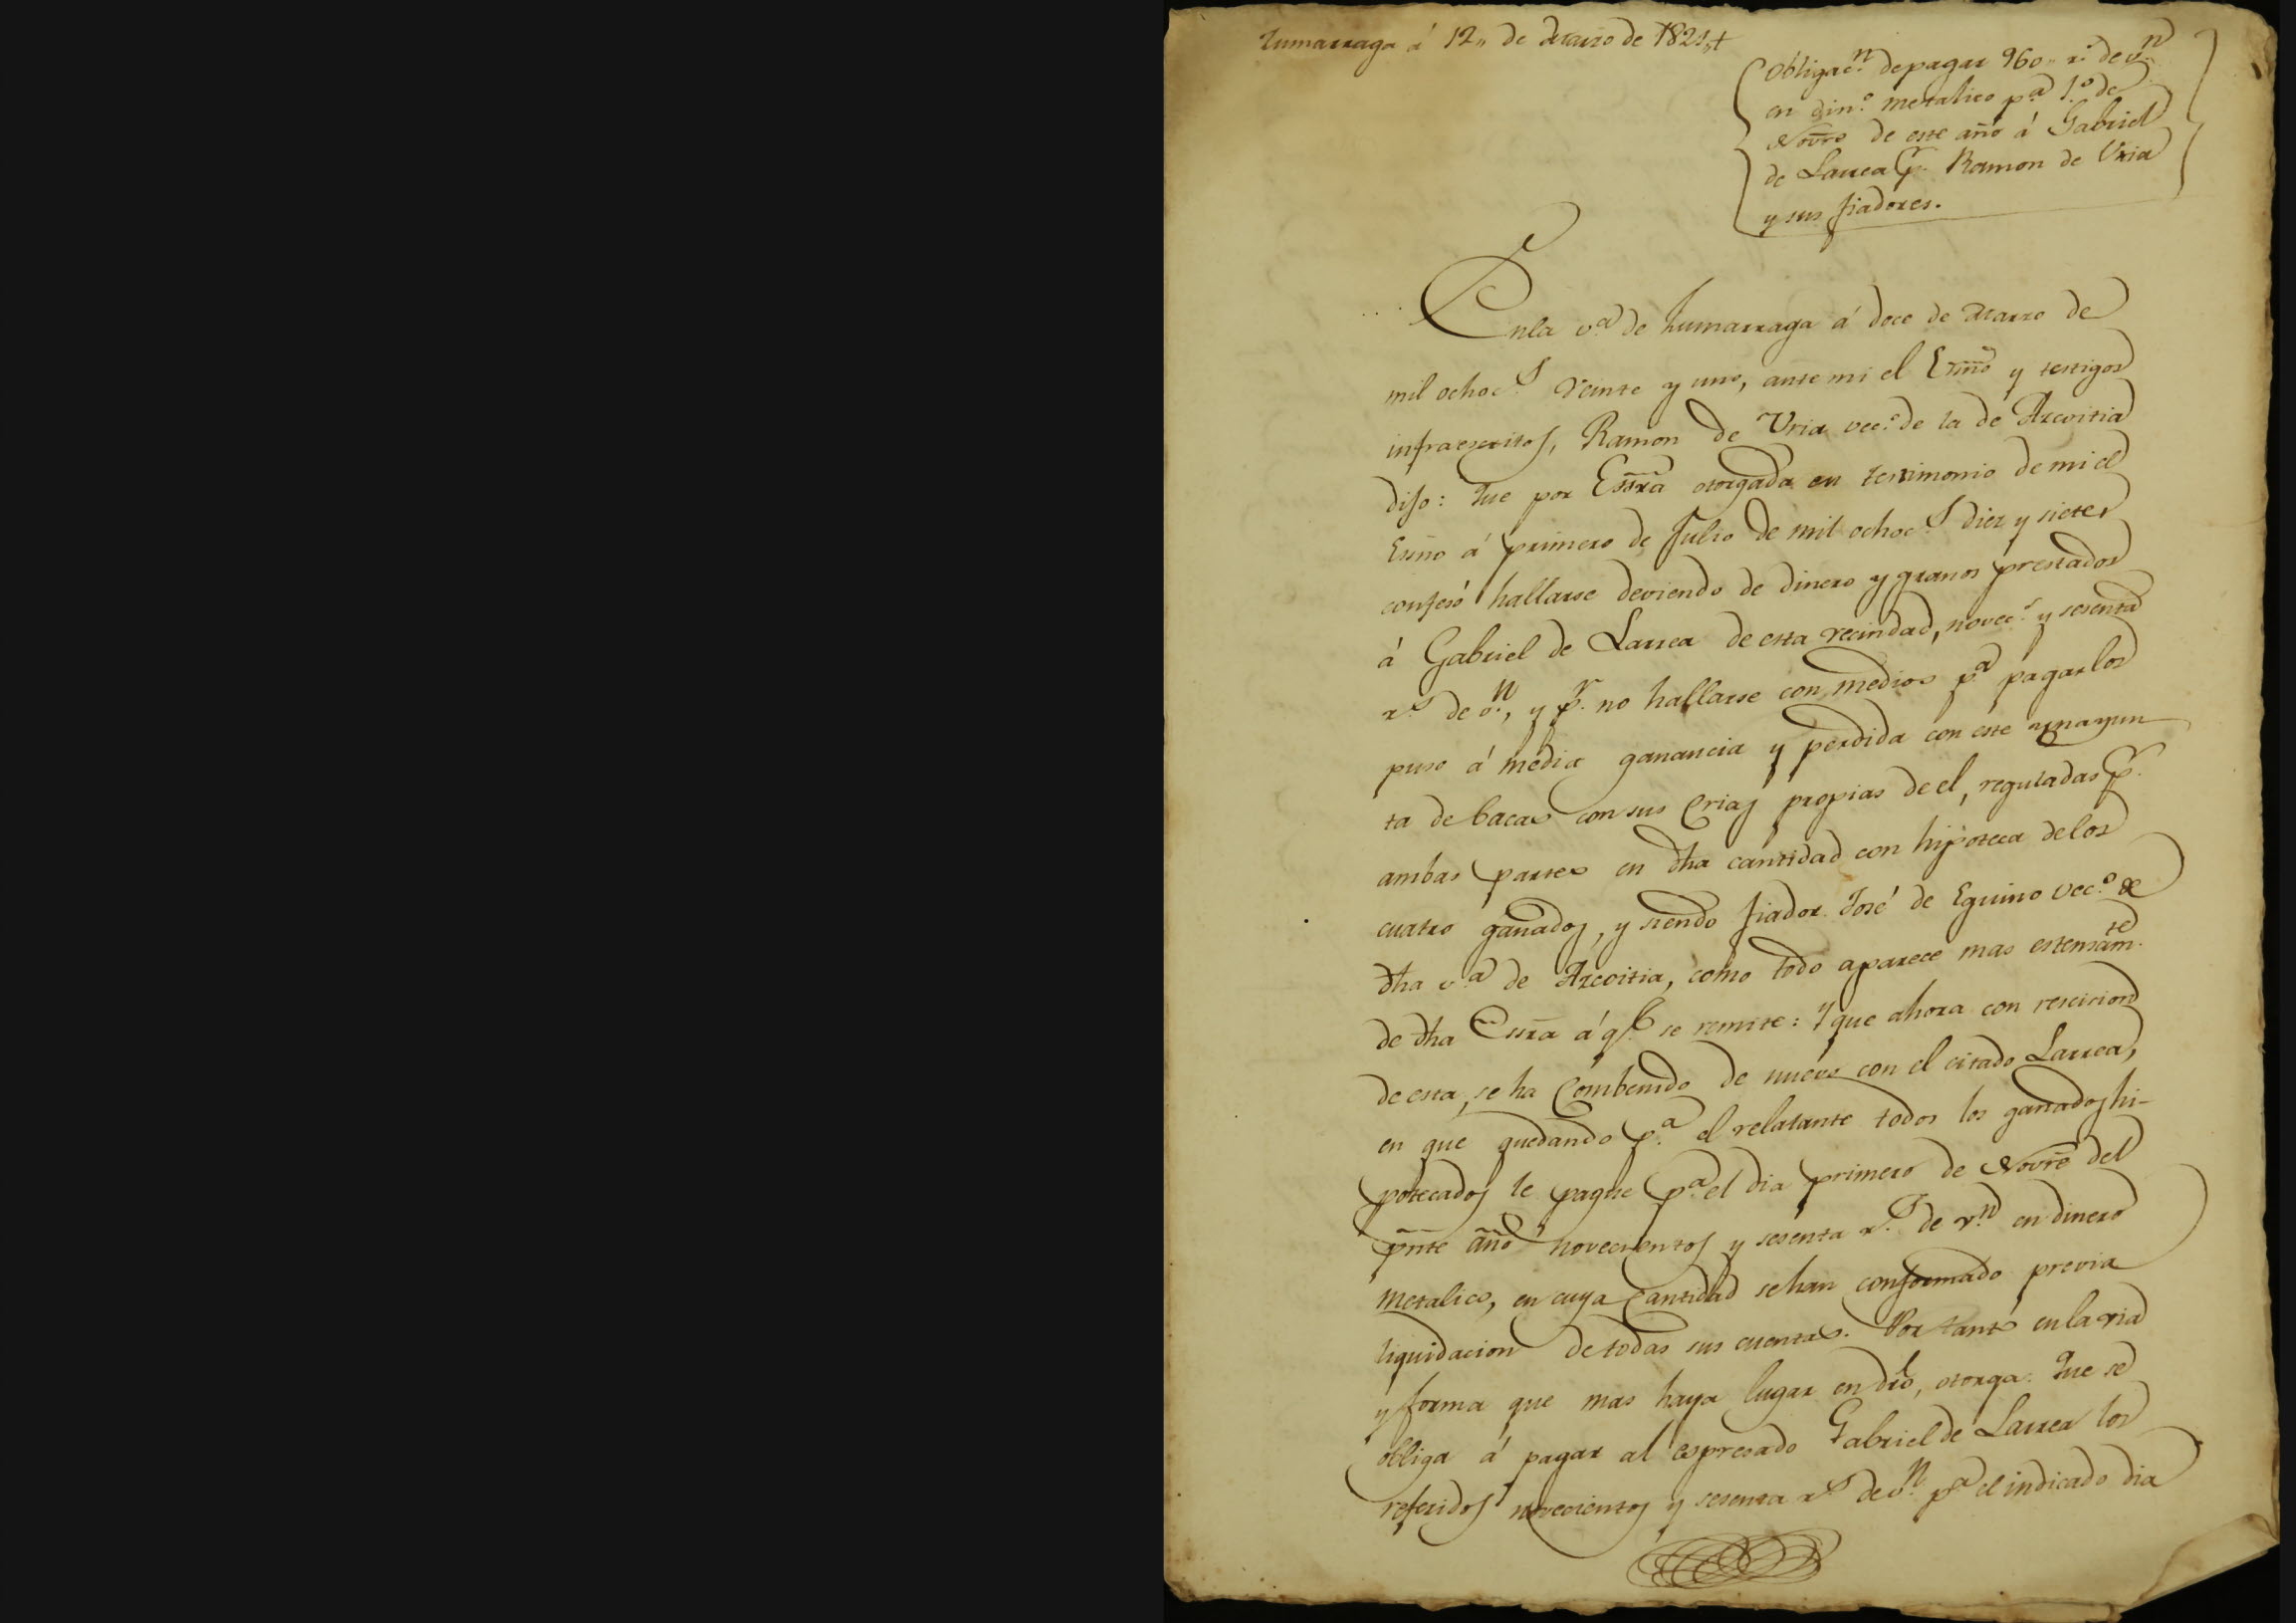 Zumarraga á 12,, de Marzo de 1821,, +
Obligac.n de pagar 960,, r.s de v.n
en din.o metalico p.a 1.o de
Novre de este año á Gabriel
de Larrea p.r Ramon de Vria
y sus fiadores.
Enla v.a de Zumarraga á doce de Marzo de
mil ochoc.s Veinte y uno, ante mi el Essno y testigos
infraescritos, Ramon de Vria vec.o de la de Azcoitia
dijo: Que por Essra otorgada en testimonio de mi el
Essno á primero de Julio de mil ochoc.s diez y siete,
confesó hallarse deviendo de dinero y granos prestados
á Gabriel de Larrea de esta vecindad, novec.s y sesenta
r.s de v.n, y p.r no hallarse con medios p.a pagarlos
puso á media ganancia y perdida con este una yun
ta de bacas con sus Crias propias de el, reguladas p.r
ambas partes en dha cantidad con hipoteca delos
cuatro ganados, y siendo fiador José de Eguino vec.o de
dha v.a de Azcoitia, como todo aparece mas estensam.te
de dha Essra á q.e se remite: Y que ahora con rescicion
de esta, se ha Combenido de nuevo con el citado Larrea,
en que quedando p.a el relatante todos los ganados hi-
potecados le pague p.a el dia primero de Novre del
pnte año novecientos y sesenta r.s de v.n en dinero
metalico, en cuya Cantidad sehan conformado previa
liquidacion de todas sus cuentas. Por tanto en la via
y forma que mas haya lugar en dro, otorga: Que se
obliga á pagar al espresado Gabriel de Larrea los
referidos novecientos y sesenta r.s de v.n p.a el indicado dia